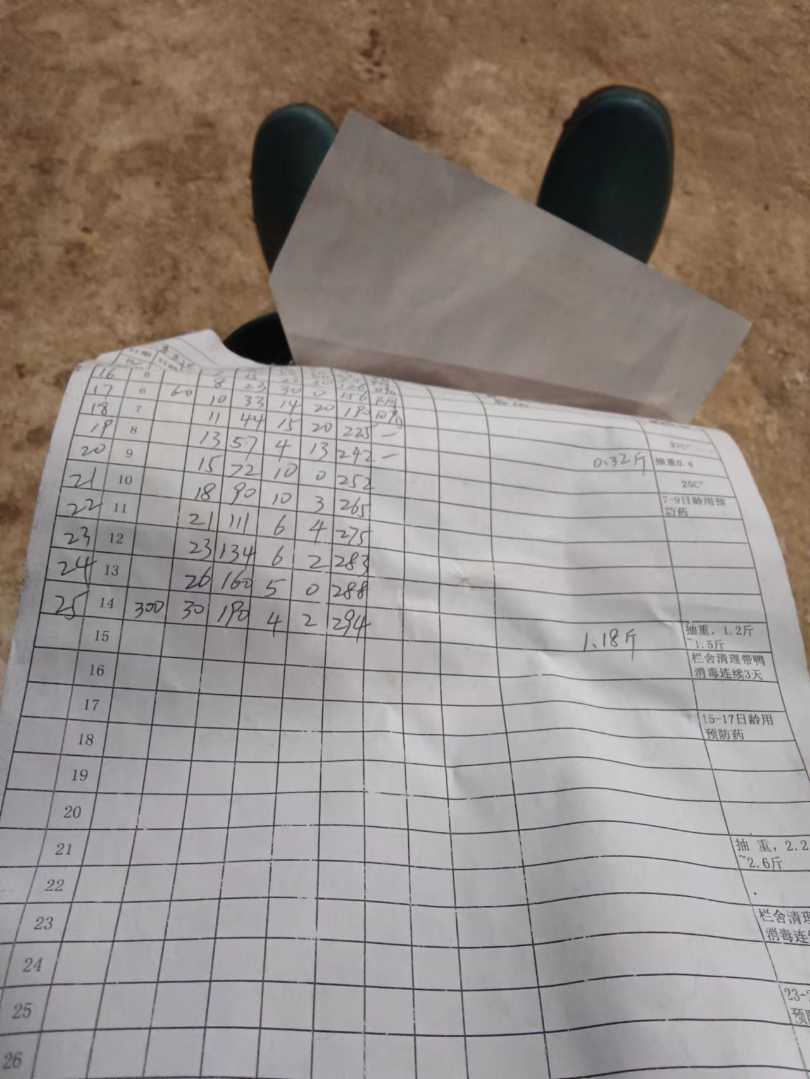 16 8 23 30 0 156
17 6 60 10 33 14 20 190
18 7 11 44 15 20 225 一 0.32斤 抽重0.4
19 8 13 57 4 13 242 一
20 9 15 72 10 0 252 7-9日龄用预防药
21 10 18 90 10 3 265
22 11 21 111 6 4 275
23 12 23 134 6 2 283
24 13 26 160 5 0 288
25 14 300 30 190 4 2 294 1.18斤 抽重，1.2斤~1.5斤
15 栏舍清理带鸭消毒连续3天
16
17 15-17日龄用预防药
18
19
20
21 抽 重，2.2~2.6斤
22
23 栏舍清理 消毒连
24
25 23-
26